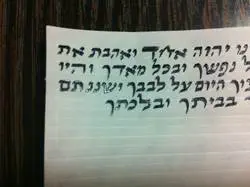 נו יהוה אחד ואהבת את
ל נפשך ובכל מאדך והיו
היום על לבבך ושננתם
בביתך ובלכתך